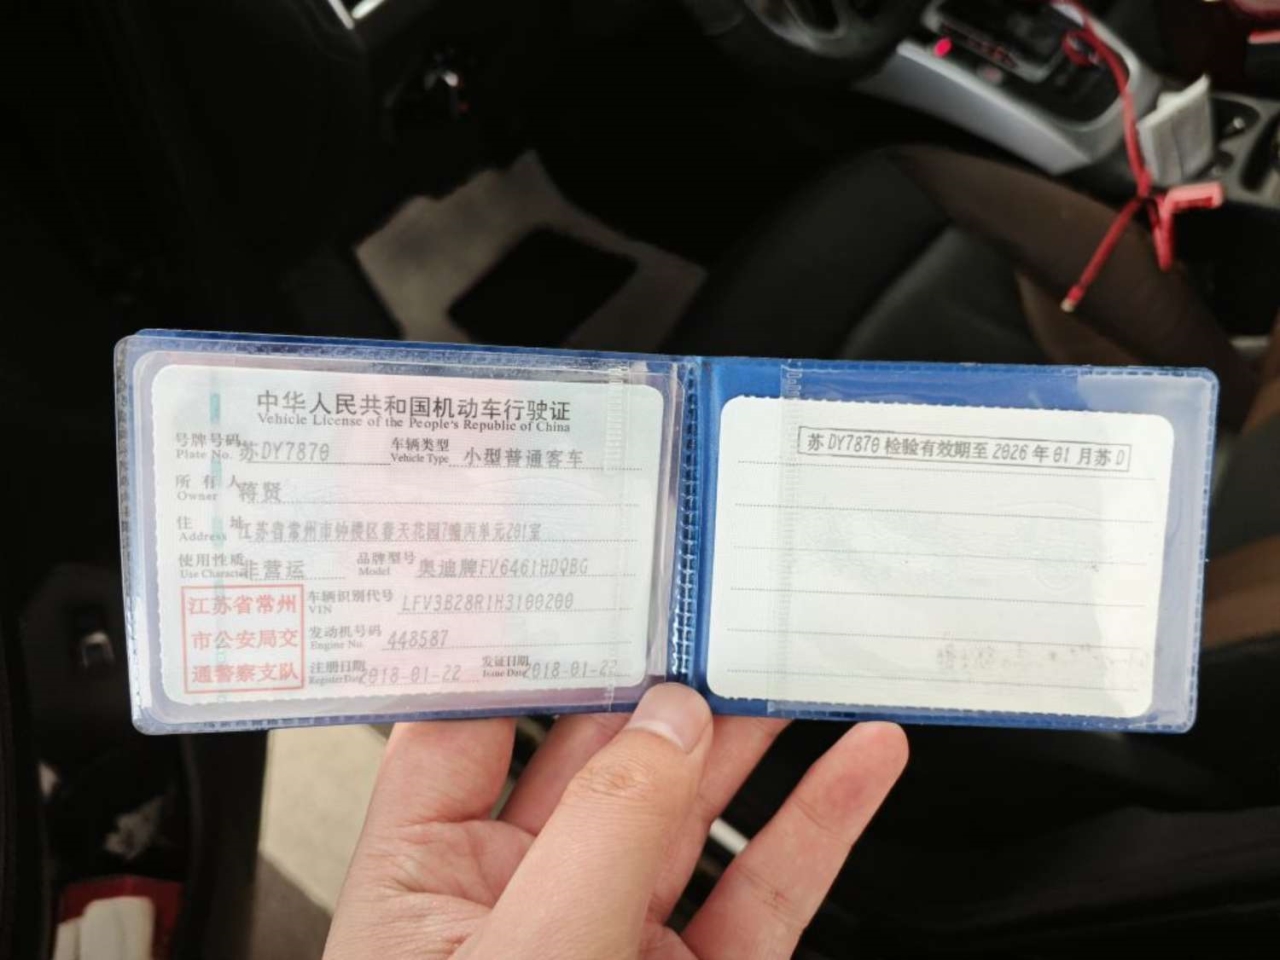 中华人民共和国机动车行驶证
Vehicle License of the People's Republic of China
号牌号码 苏DY7870 车辆类型 小型普通客车
Plate No. Vehicle Type
所有人 蒋贤
Owner
住址 江苏省常州市钟楼区春天花园7幢丙单元201室
Address
使用性质 非营运 品牌型号 奥迪牌FV6461HDQBG
Use Character Model
江苏省常州
市公安局交
通警察支队
车辆识别代号 LFV3B28R1H3100200
VIN
发动机号码 448587
Engine No.
注册日期 2018-01-22 发证日期 2018-01-22
Register Date Issue Date
苏DY7870检验有效期至2026年01月苏D